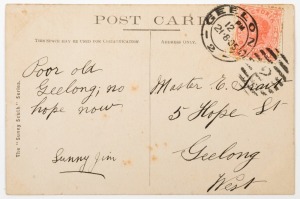 POST CARD
THIS SPACE MAY BE USED FOR COMMUNICATION
ADDRESS ONLY.
GEELONG
12
Poor old
Geelong; no
hope now.
Sunny Jim
Master E.
5 Hope St
Geelong
West
The "Sunny South" Series.